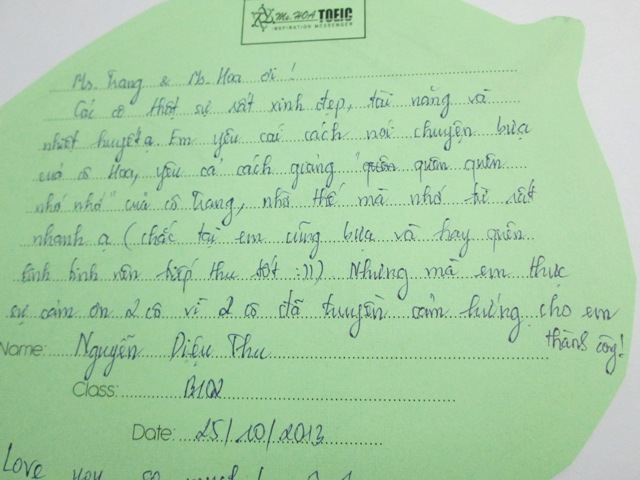 Ms. HOA TOEIC
INSPIRATION MESSENGER
Ms. Trang & Ms. Hoa ơi!
Các cô thật sự rất xinh đẹp, tài năng và
nhiệt huyết ạ. Em yêu cái cách nói chuyện bựa
của cô Hoa, yêu cả cách giảng "quên quên quên
nhớ nhớ" của cô Trang, nhờ thế mà nhớ từ rất
nhanh ạ (chắc tại em cũng bựa và hay quên
tính tình nên tiếp thu tốt :))) Nhưng mà em thực
sự cảm ơn 2 cô vì 2 cô đã truyền cảm hứng cho em
thành công!
Name: Nguyễn Diệu Thu
Class: B102
Date: 25/10/2013
Love you so much!